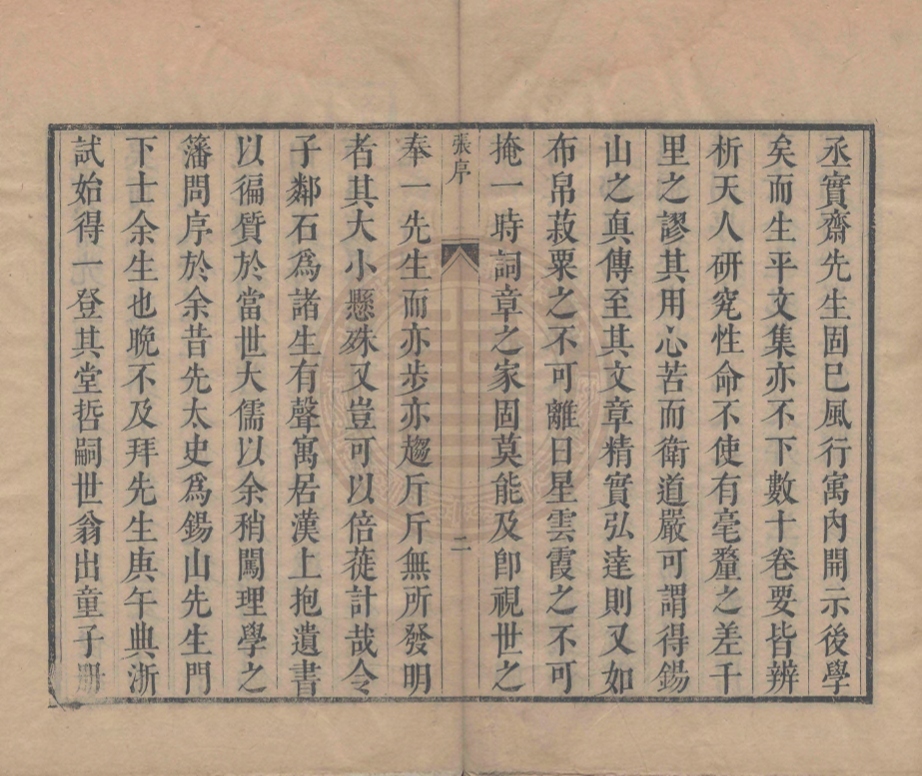 丞實齋先生固巳風行寓內開示後學
矣而生平文集亦不下數十卷要皆辨
析天人硏究性命不使有毫釐之差千
里之謬其用心苦而衛道嚴可謂得鍚
山之眞傳至其文章精實弘達則又如
布帛菽粟之不可離日星雲霞之不可
掩一時詞章之家固莫能及卽視世之
張序
二
奉一先生而亦步亦趨斤斤無所發明
者其大小懸殊又豈可以倍蓰計哉令
子鄰石爲諸生有聲寓居漢上抱遺書
以徧質於當世大儒以余稍闖理學之
籓問序於余昔先太史爲鍚山先生門
下士余生也晚不及拜先生庚午典浙
試始得一登其堂哲嗣世翁出童子册